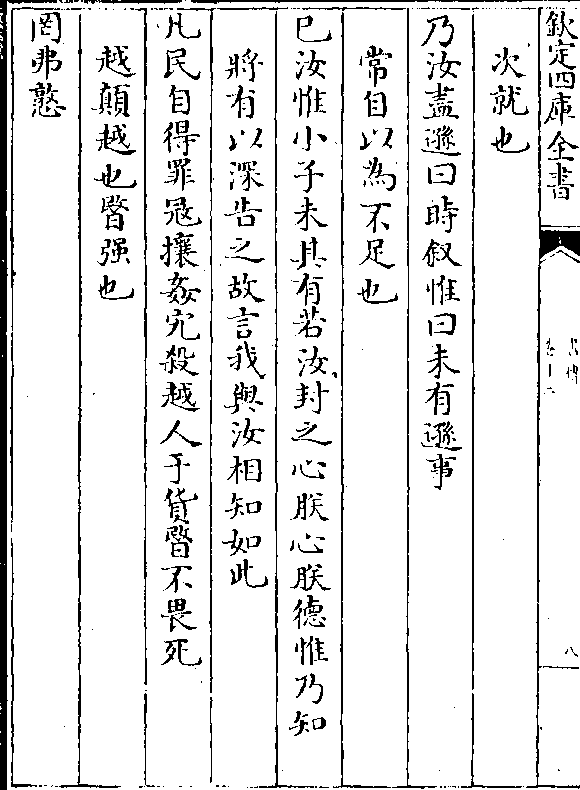 欽定四庫全書
書傳
卷十二
八
次就也
乃汝盡遜曰時叙惟曰未有遜事
常自以為不足也
已汝惟小子未其有若汝封之心朕心朕德惟乃知
將有以深告之故言我與汝相知如此
凡民自得罪冦攘姦宄殺越人于貨暋不畏死
越顛越也暋强也
罔弗憝